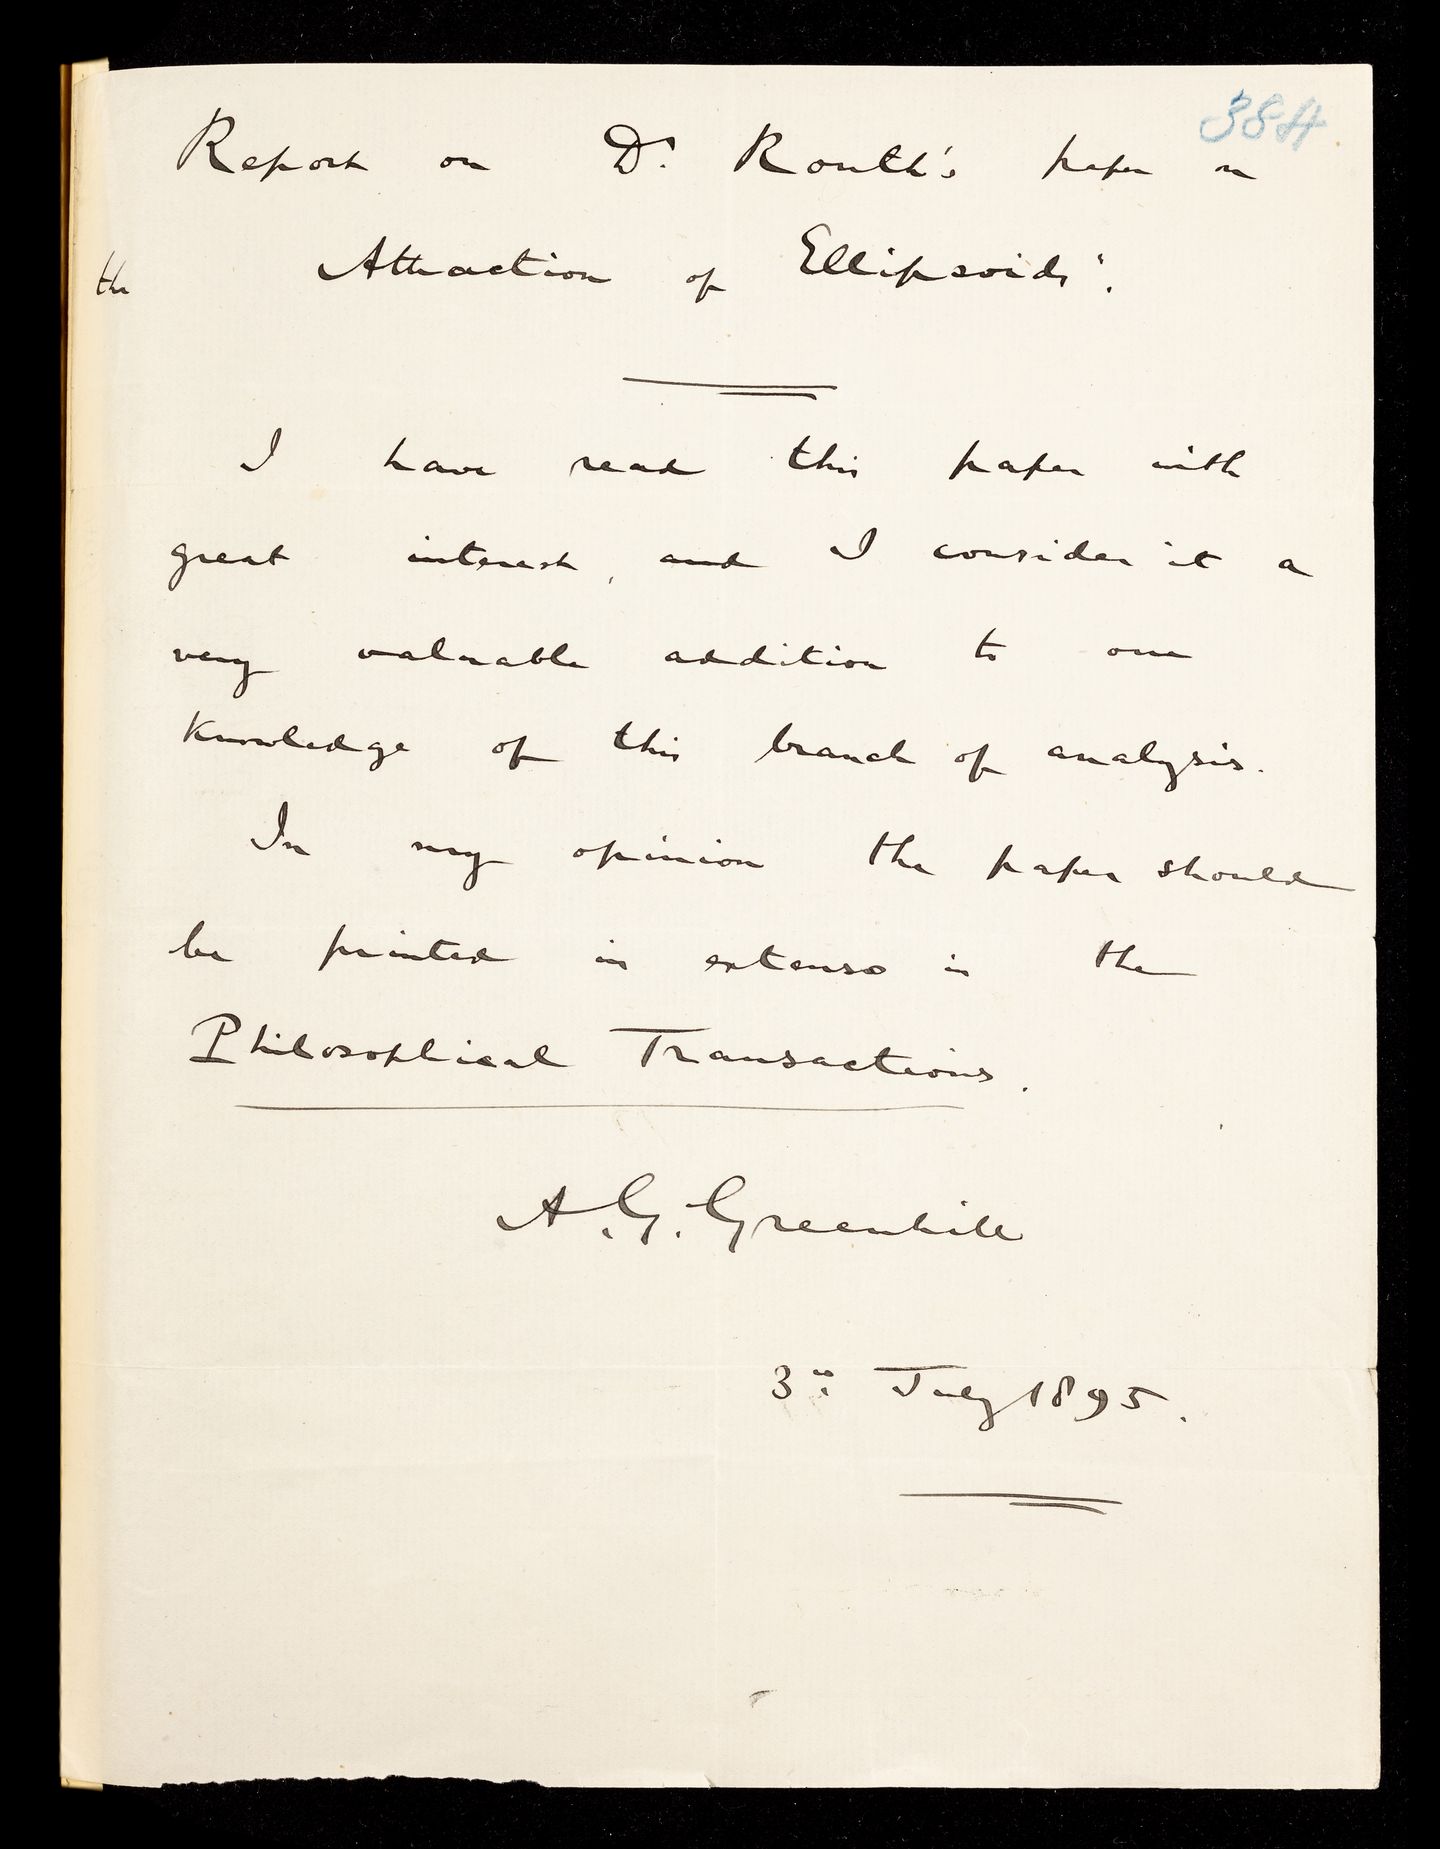 384
Report on Dr. Routh's paper on
the Attraction of Ellipsoids".
I have read this paper with
great interest, and I consider it a
very valuable addition to our
knowledge of this branch of analysis.
In my opinion the paper should
be printed in extenso in the
Philosophical Transactions.
A. G. Greenhill
3rd July 1895.